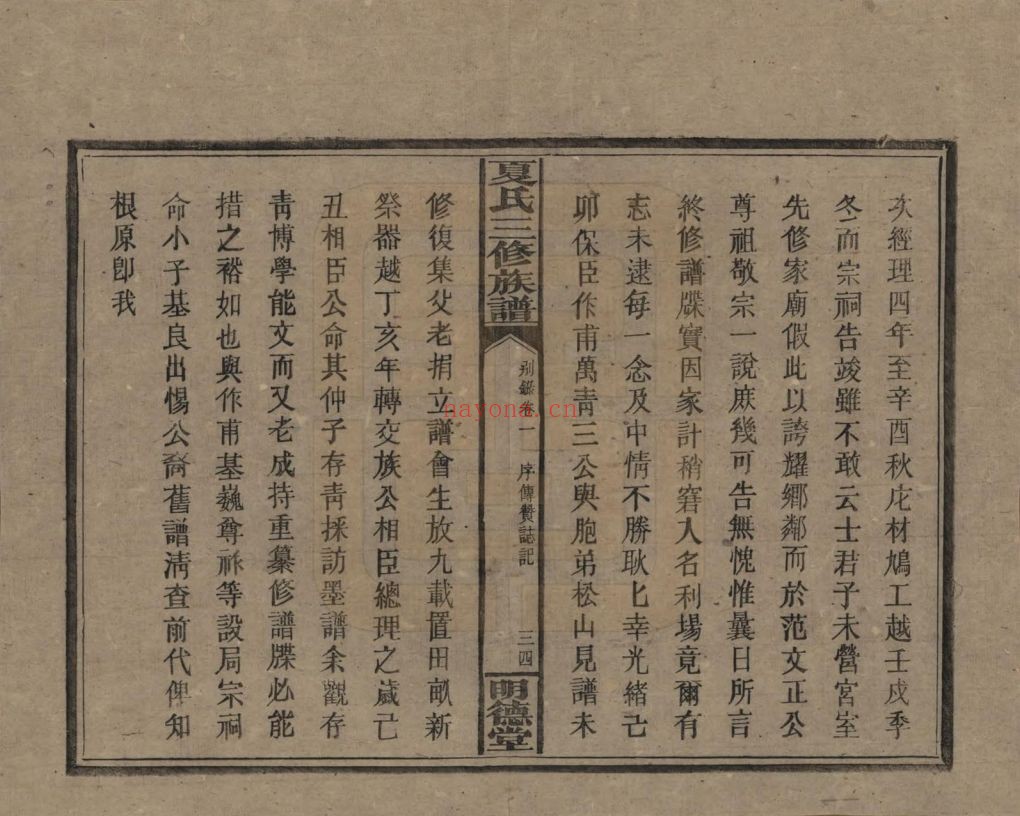 次經理四年至辛酉秋庀材鳩工越壬戌季
冬而宗祠告竣雖不敢云士君子未營宮室
先修家廟假此以誇耀鄉鄰而於范文正公
尊祖敬宗一說庶幾可告無愧惟曩日所言
終修譜牒實因家計稍窘人名利場竟爾有
志未逮每一念及中情不勝耿匕幸光緒己
卯保臣作甫萬青三公與胞弟松山見譜未
夏氏三修族譜
别錄卷一
序傳贊誌記
三四
明德堂
修復集父老捐立譜會生放九載置田畝新
祭器越丁亥年轉交族公相臣總理之歲己
丑相臣公命其仲子存靑採訪墨譜余觀存
靑博學能文而又老成持重纂修譜牒必能
措之裕如也與作甫基巍尊祢等設局宗祠
命小子基良出惕公裔舊譜清查前代俾知
根原卽我
nayona.cn